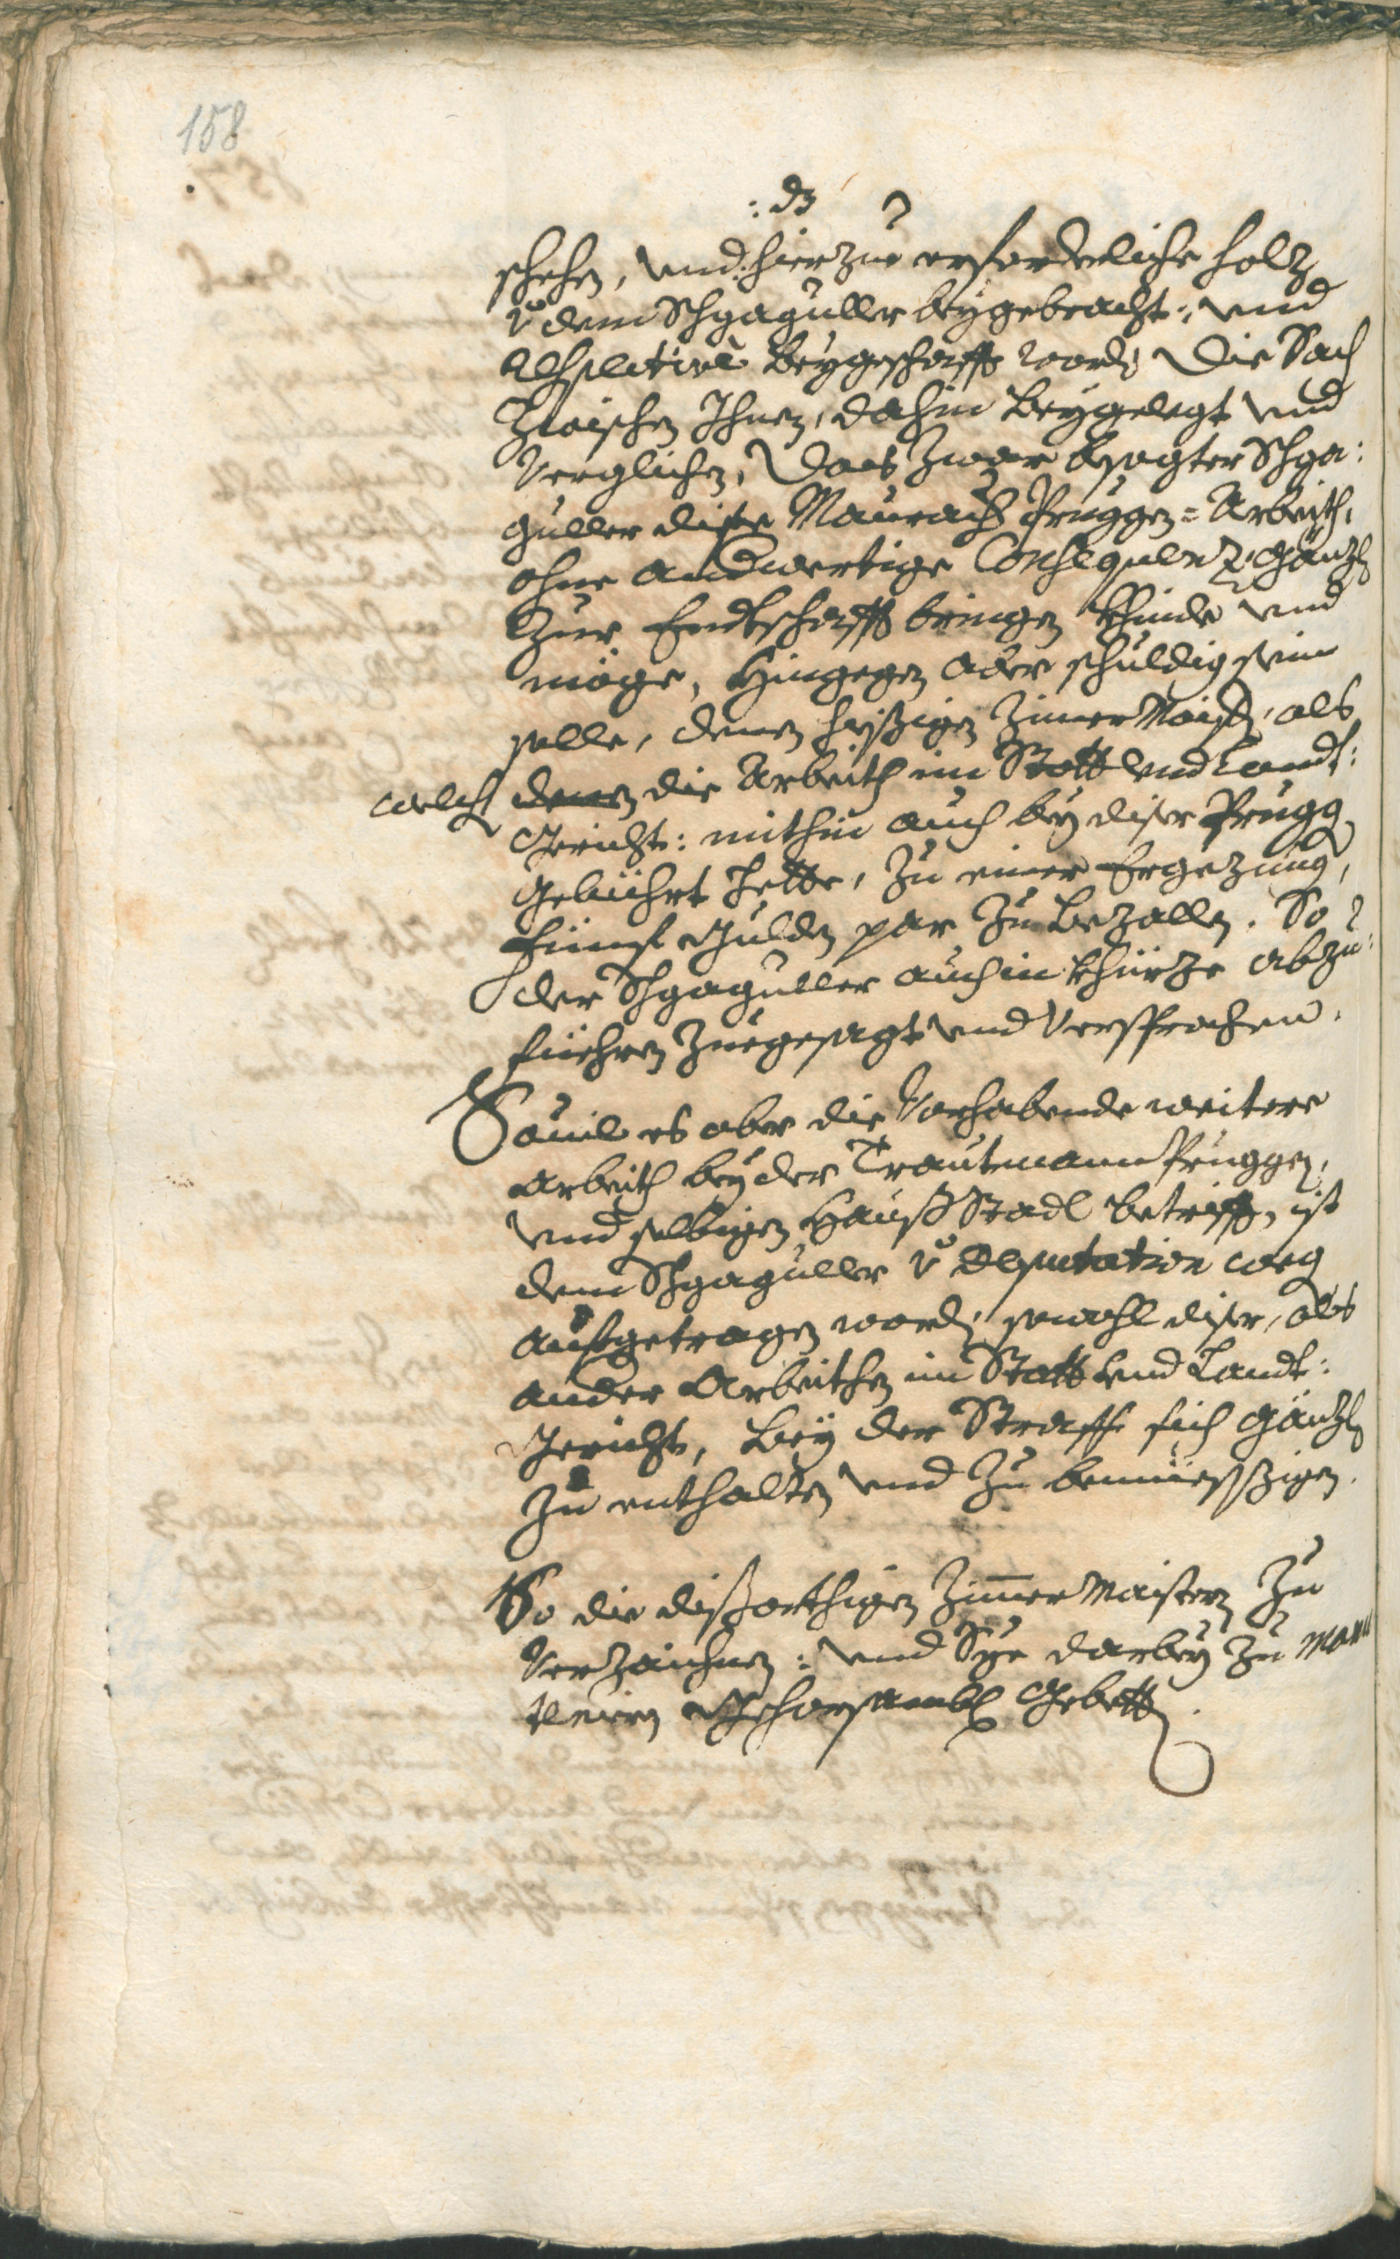 158
: dz
schehen, und: hierzue erforderliche holz
v dem Schgaguller beygebracht: und
respective Beygeschafft worden, die Sach
Zwischen Ihnen, dahin Beygelegt und
Verglichen, Das Zwar besagter Schga:
guller dise Maurach Pruggen=Arbeith,
ohne andwertige Consequenz gänzl
Zur Endtschafft bringen khinde und
möge, Hingegen aber schuldig sein
solle, denen hießigen Zimer Maistern, als
welch denen die Arbeith im Statt und Landt:
Gericht: mithin auch bey diser Prugg
gebührt hette, zu einer Ergezung,
fünf Gulden par zu Bezallen. So
der Schgaguller auch in khürze abzu:
füehren zuegesagt und Versprochen.
Souil es aber die Vorhabende weitere
Arbeith bey der Trautmann Pruggen,
und selbigen Hauß Stadl betrifft, ist
dem Schgaguller v Deputation weg
aufgetragen worden, sowohl diser, als
ander Arbeithen im Statt und Landt:
Gericht, Bey der Straff sich gänzl
zu enthalten und zu bemüessigen.
So die dißorthigen Zimer Maistern zu
Verzaichnen: und Sye darbey zu manu
tenirn gehorsambl Gebetten.